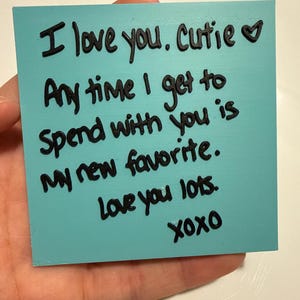 I love you. Cutie ♡
Any time I get to
spend with you is
my new favorite.
Love you lots.
xoxo